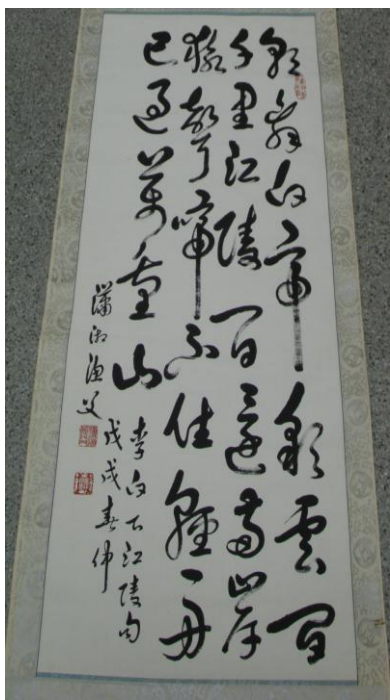 朝辞白帝彩雲間
千里江陵一日還兩岸
猿聲啼不住輕舟
已過萬重山
李白下江陵句
戊戌春伟
瀟湘漁父